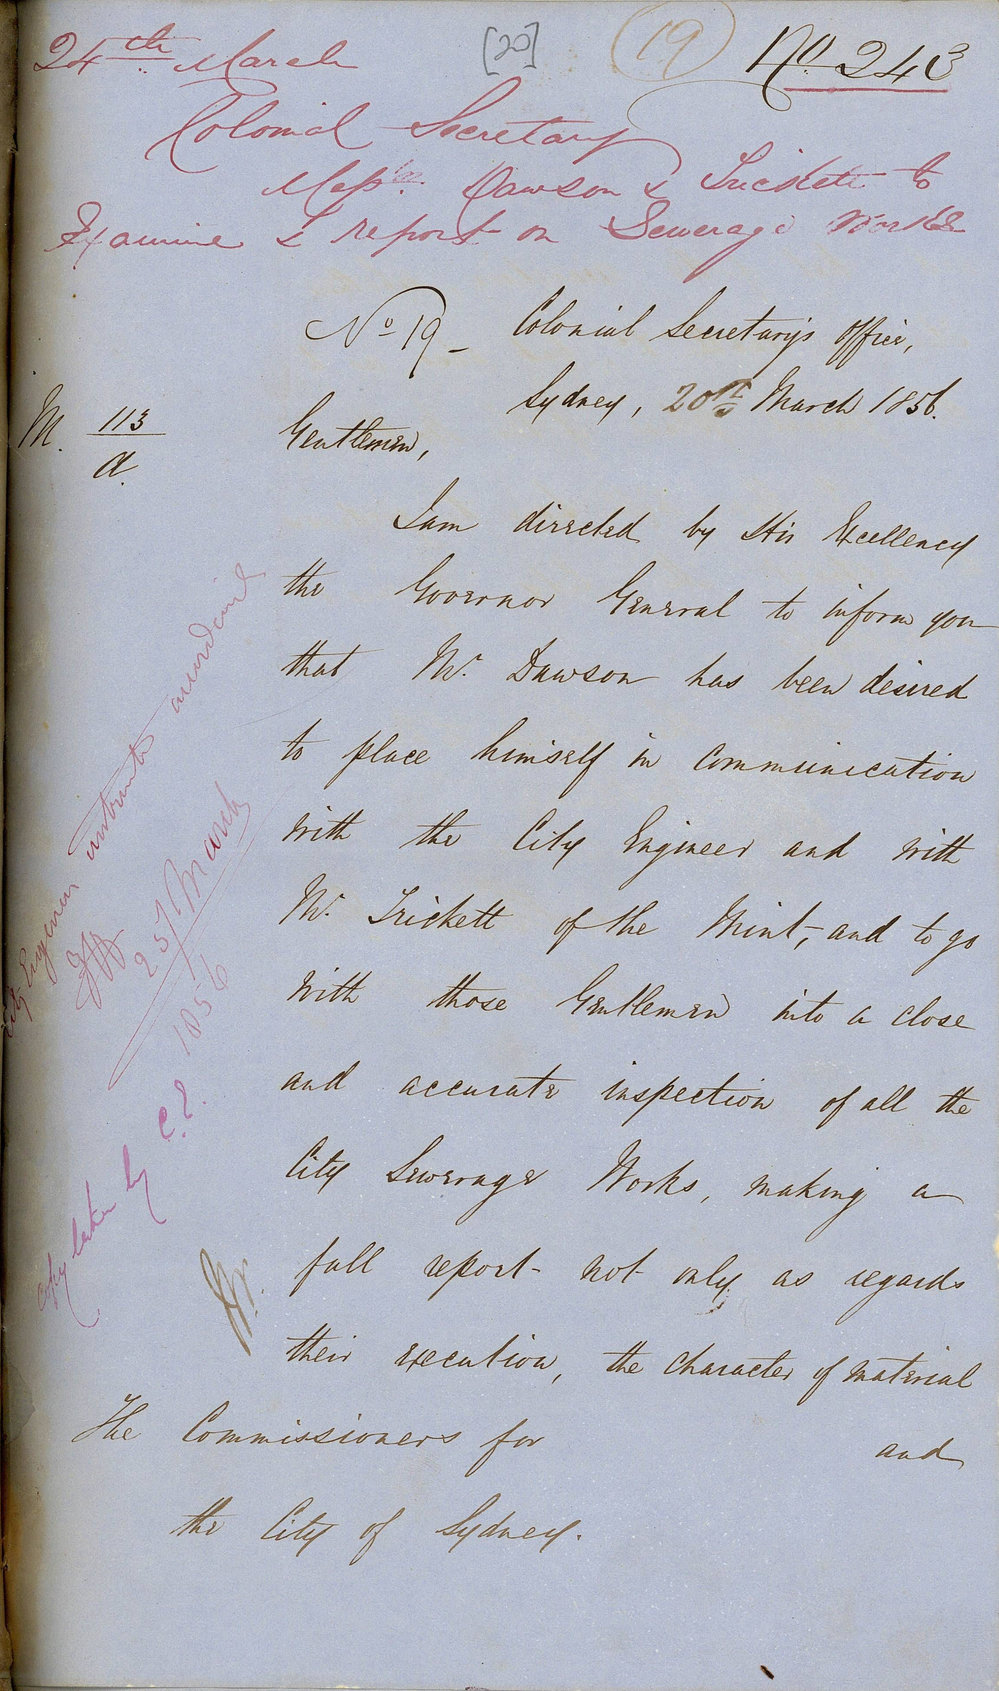 24th March
[20]
19
No 243
Colonial Secretary
Messrs. Dawson & Trickett to
Examine & report on Sewerage Works
No 19 - Colonial Secretary's Office,
Sydney, 20th March 1856.
M. 113
A.
Gentlemen,
I am directed by His Excellency
the Governor General to inform you
that Mr. Dawson has been desired
to place himself in communication
with the City Engineer and with
Mr. Trickett of the Mint, and to go
with those Gentlemen into a close
and accurate inspection of all the
City Sewerage Works, making a
full report not only as regards
their execution, the character of material
and
The Commissioners for
the City of Sydney.
City Engineer
25 March
1856
Copy taken by C.E.